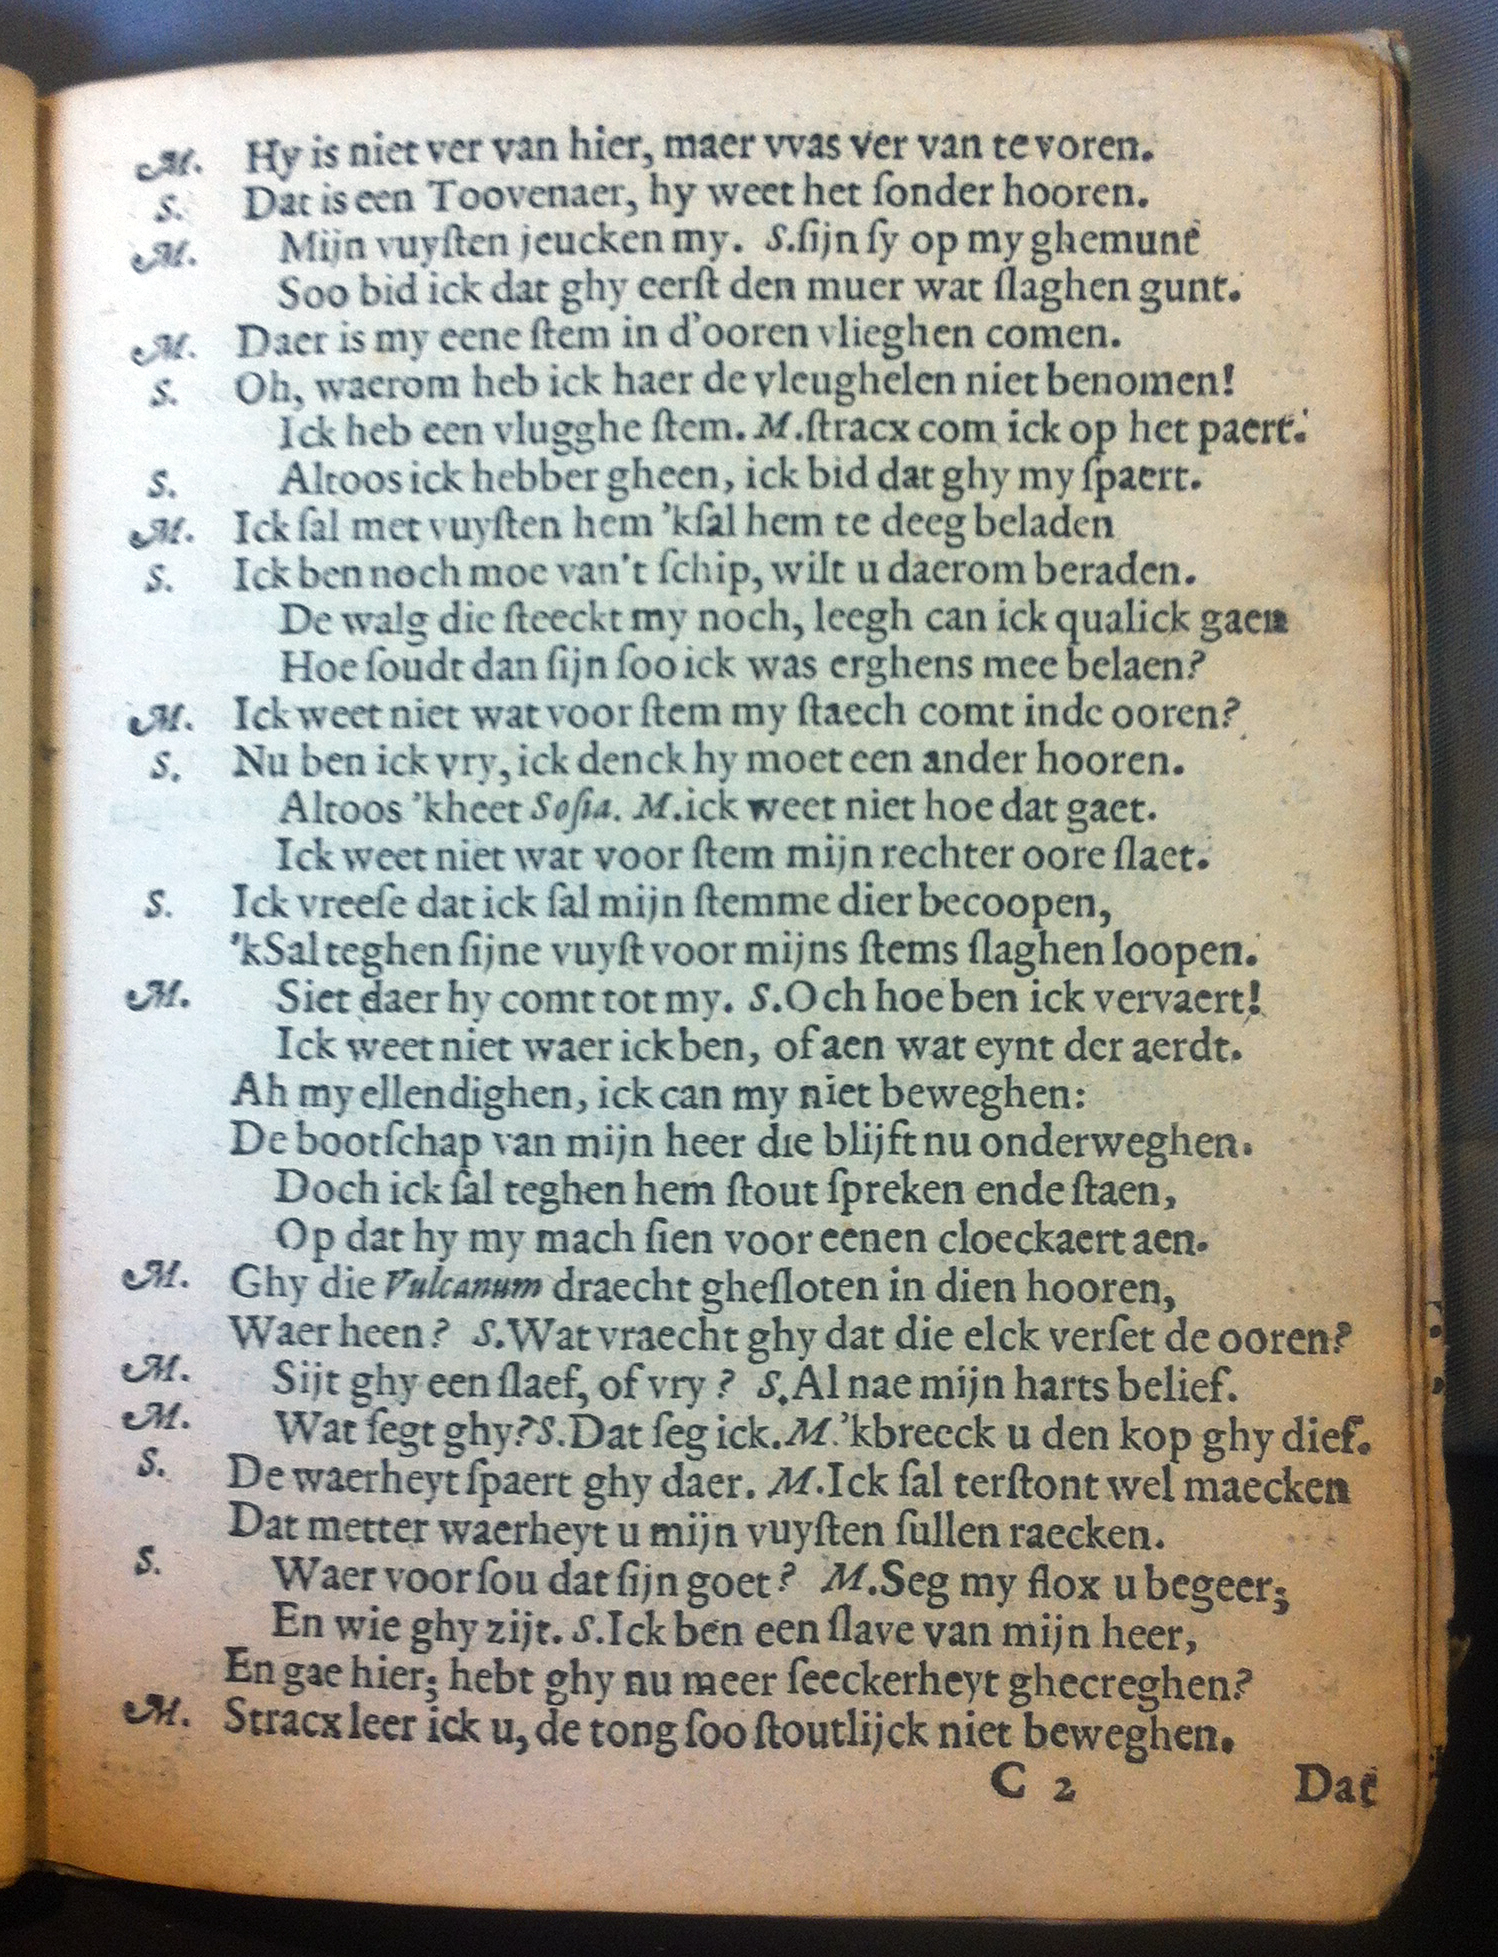 M. Hy is niet ver van hier, maer vvas ver van te voren.
S. Dat is een Toovenaer, hy weet het ſonder hooren.
M. Mijn vuyſten jeucken my. S.ſijn ſy op my ghemunt
Soo bid ick dat ghy eerſt den muer wat ſlaghen gunt.
M. Daer is my eene ſtem in d'ooren vlieghen comen.
S. Oh, waerom heb ick haer de vleughelen niet benomen!
Ick heb een vlugghe ſtem. M.ſtracx com ick op het paert.
S. Altoos ick hebber gheen, ick bid dat ghy my ſpaert.
M. Ick ſal met vuyſten hem 'kſal hem te deeg beladen
S. Ick ben noch moe van't ſchip, wilt u daerom beraden.
De walg die ſteeckt my noch, leegh can ick qualick gaen
Hoe ſoudt dan ſijn ſoo ick was erghens mee belaen?
M. Ick weet niet wat voor ſtem my ſtaech comt inde ooren?
S. Nu ben ick vry, ick denck hy moet een ander hooren.
Altoos 'kheet Soſia. M.ick weet niet hoe dat gaet.
Ick weet niet wat voor ſtem mijn rechter oore ſlaet.
S. Ick vreeſe dat ick ſal mijn ſtemme dier becoopen,
'kSal teghen ſijne vuyſt voor mijns ſtems ſlaghen loopen.
M. Siet daer hy comt tot my. S.Och hoe ben ick vervaert!
Ick weet niet waer ick ben, of aen wat eynt der aerdt.
Ah my ellendighen, ick can my niet beweghen:
De bootſchap van mijn heer die blijft nu onderweghen.
Doch ick ſal teghen hem ſtout ſpreken ende ſtaen,
Op dat hy my mach ſien voor eenen cloeckaert aen.
M. Ghy die Vulcanum draecht gheſloten in dien hooren,
Waer heen? S.Wat vraecht ghy dat die elck verſet de ooren?
M. Sijt ghy een ſlaef, of vry? S.Al nae mijn harts belief.
M. Wat ſegt ghy? S.Dat ſeg ick. M.'kbreeck u den kop ghy dief.
S. De waerheyt ſpaert ghy daer. M.Ick ſal terſtont wel maecken
Dat metter waerheyt u mijn vuyſten ſullen raecken.
S. Waer voor ſou dat ſijn goet? M.Seg my flox u begeer;
En wie ghy zijt. S.Ick ben een ſlave van mijn heer,
En gae hier; hebt ghy nu meer ſeeckerheyt ghecreghen?
M. Stracx leer ick u, de tong ſoo ſtoutlijck niet beweghen.
C 2 Dat